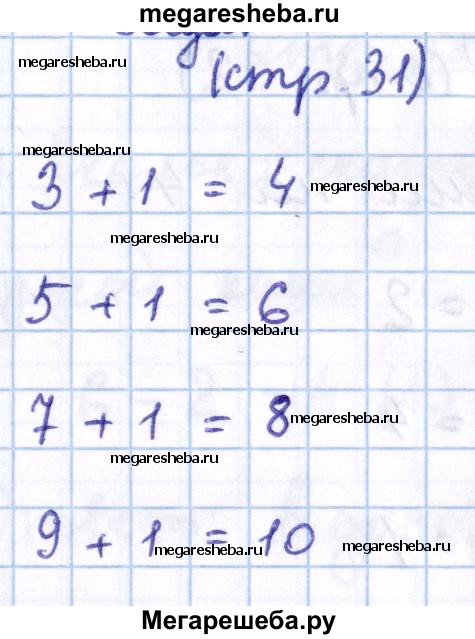 megaresheba.ru
megaresheba.ru
(стр. 31)
3 + 1 = 4 megaresheba.ru
megaresheba.ru
5 + 1 = 6
megaresheba.ru
7 + 1 = 8 megaresheba.ru
megaresheba.ru
9 + 1 = 10
megaresheba.ru megaresheba.ru
Мегарешеба.ру